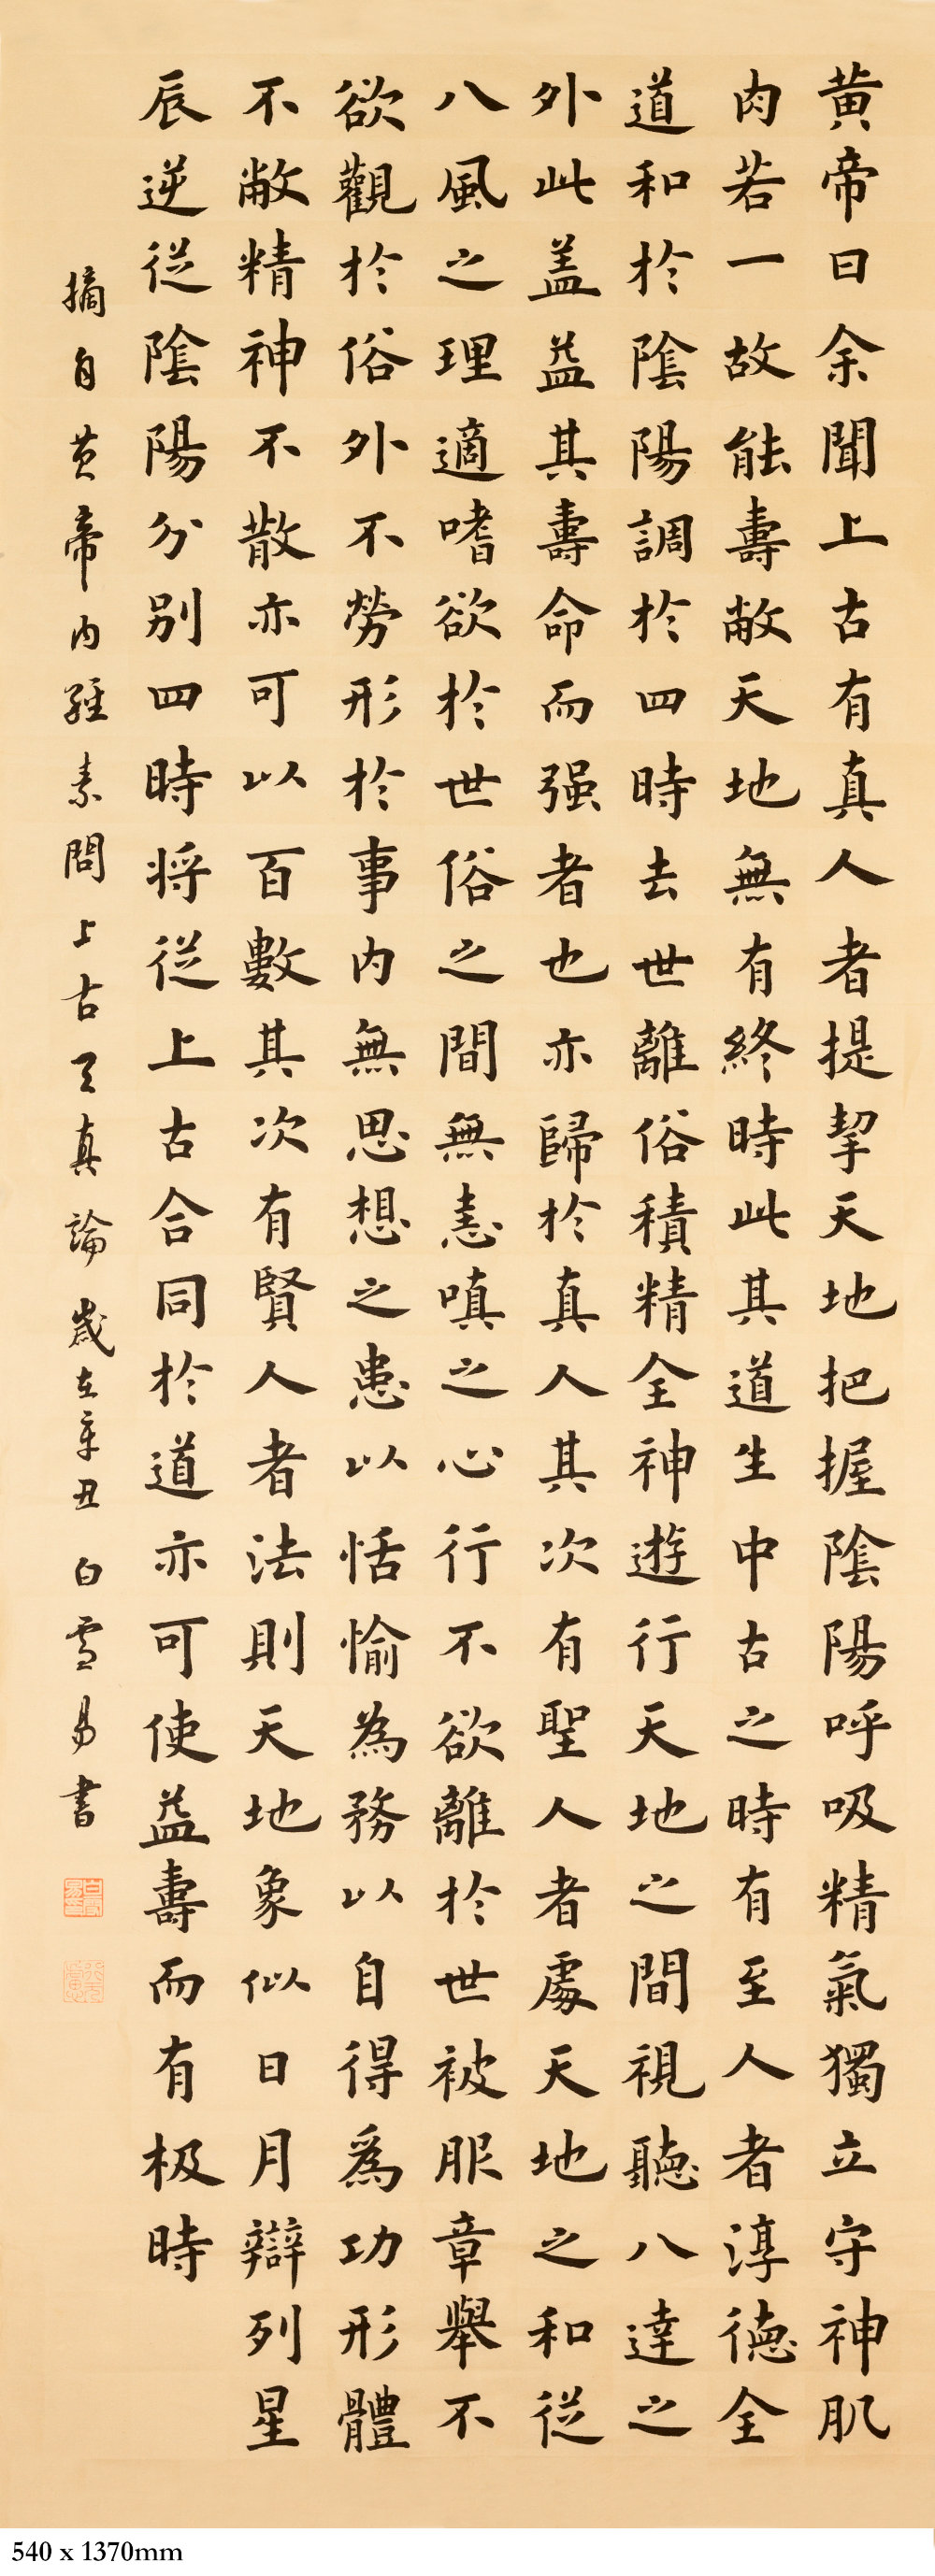 黄帝曰余聞上古有真人者提挈天地把握陰陽呼吸精氣獨立守神肌
肉若一故能壽敝天地無有終時此其道生中古之時有至人者淳德全
道和於陰陽調於四時去世離俗積精全神遊行天地之間視聽八達之
外此蓋益其壽命而强者也亦歸於真人其次有聖人者處天地之和從
八風之理適嗜欲於世俗之間無恚嗔之心行不欲離於世被服章舉不
欲觀於俗外不勞形於事内無思想之患以恬愉為務以自得爲功形體
不敝精神不散亦可以百數其次有賢人者法則天地象似日月辯列星
辰逆從陰陽分别四時将從上古合同於道亦可使益壽而有极時
摘自黄帝内經素問上古天真論歲在辛丑白雪易書
540 x 1370mm